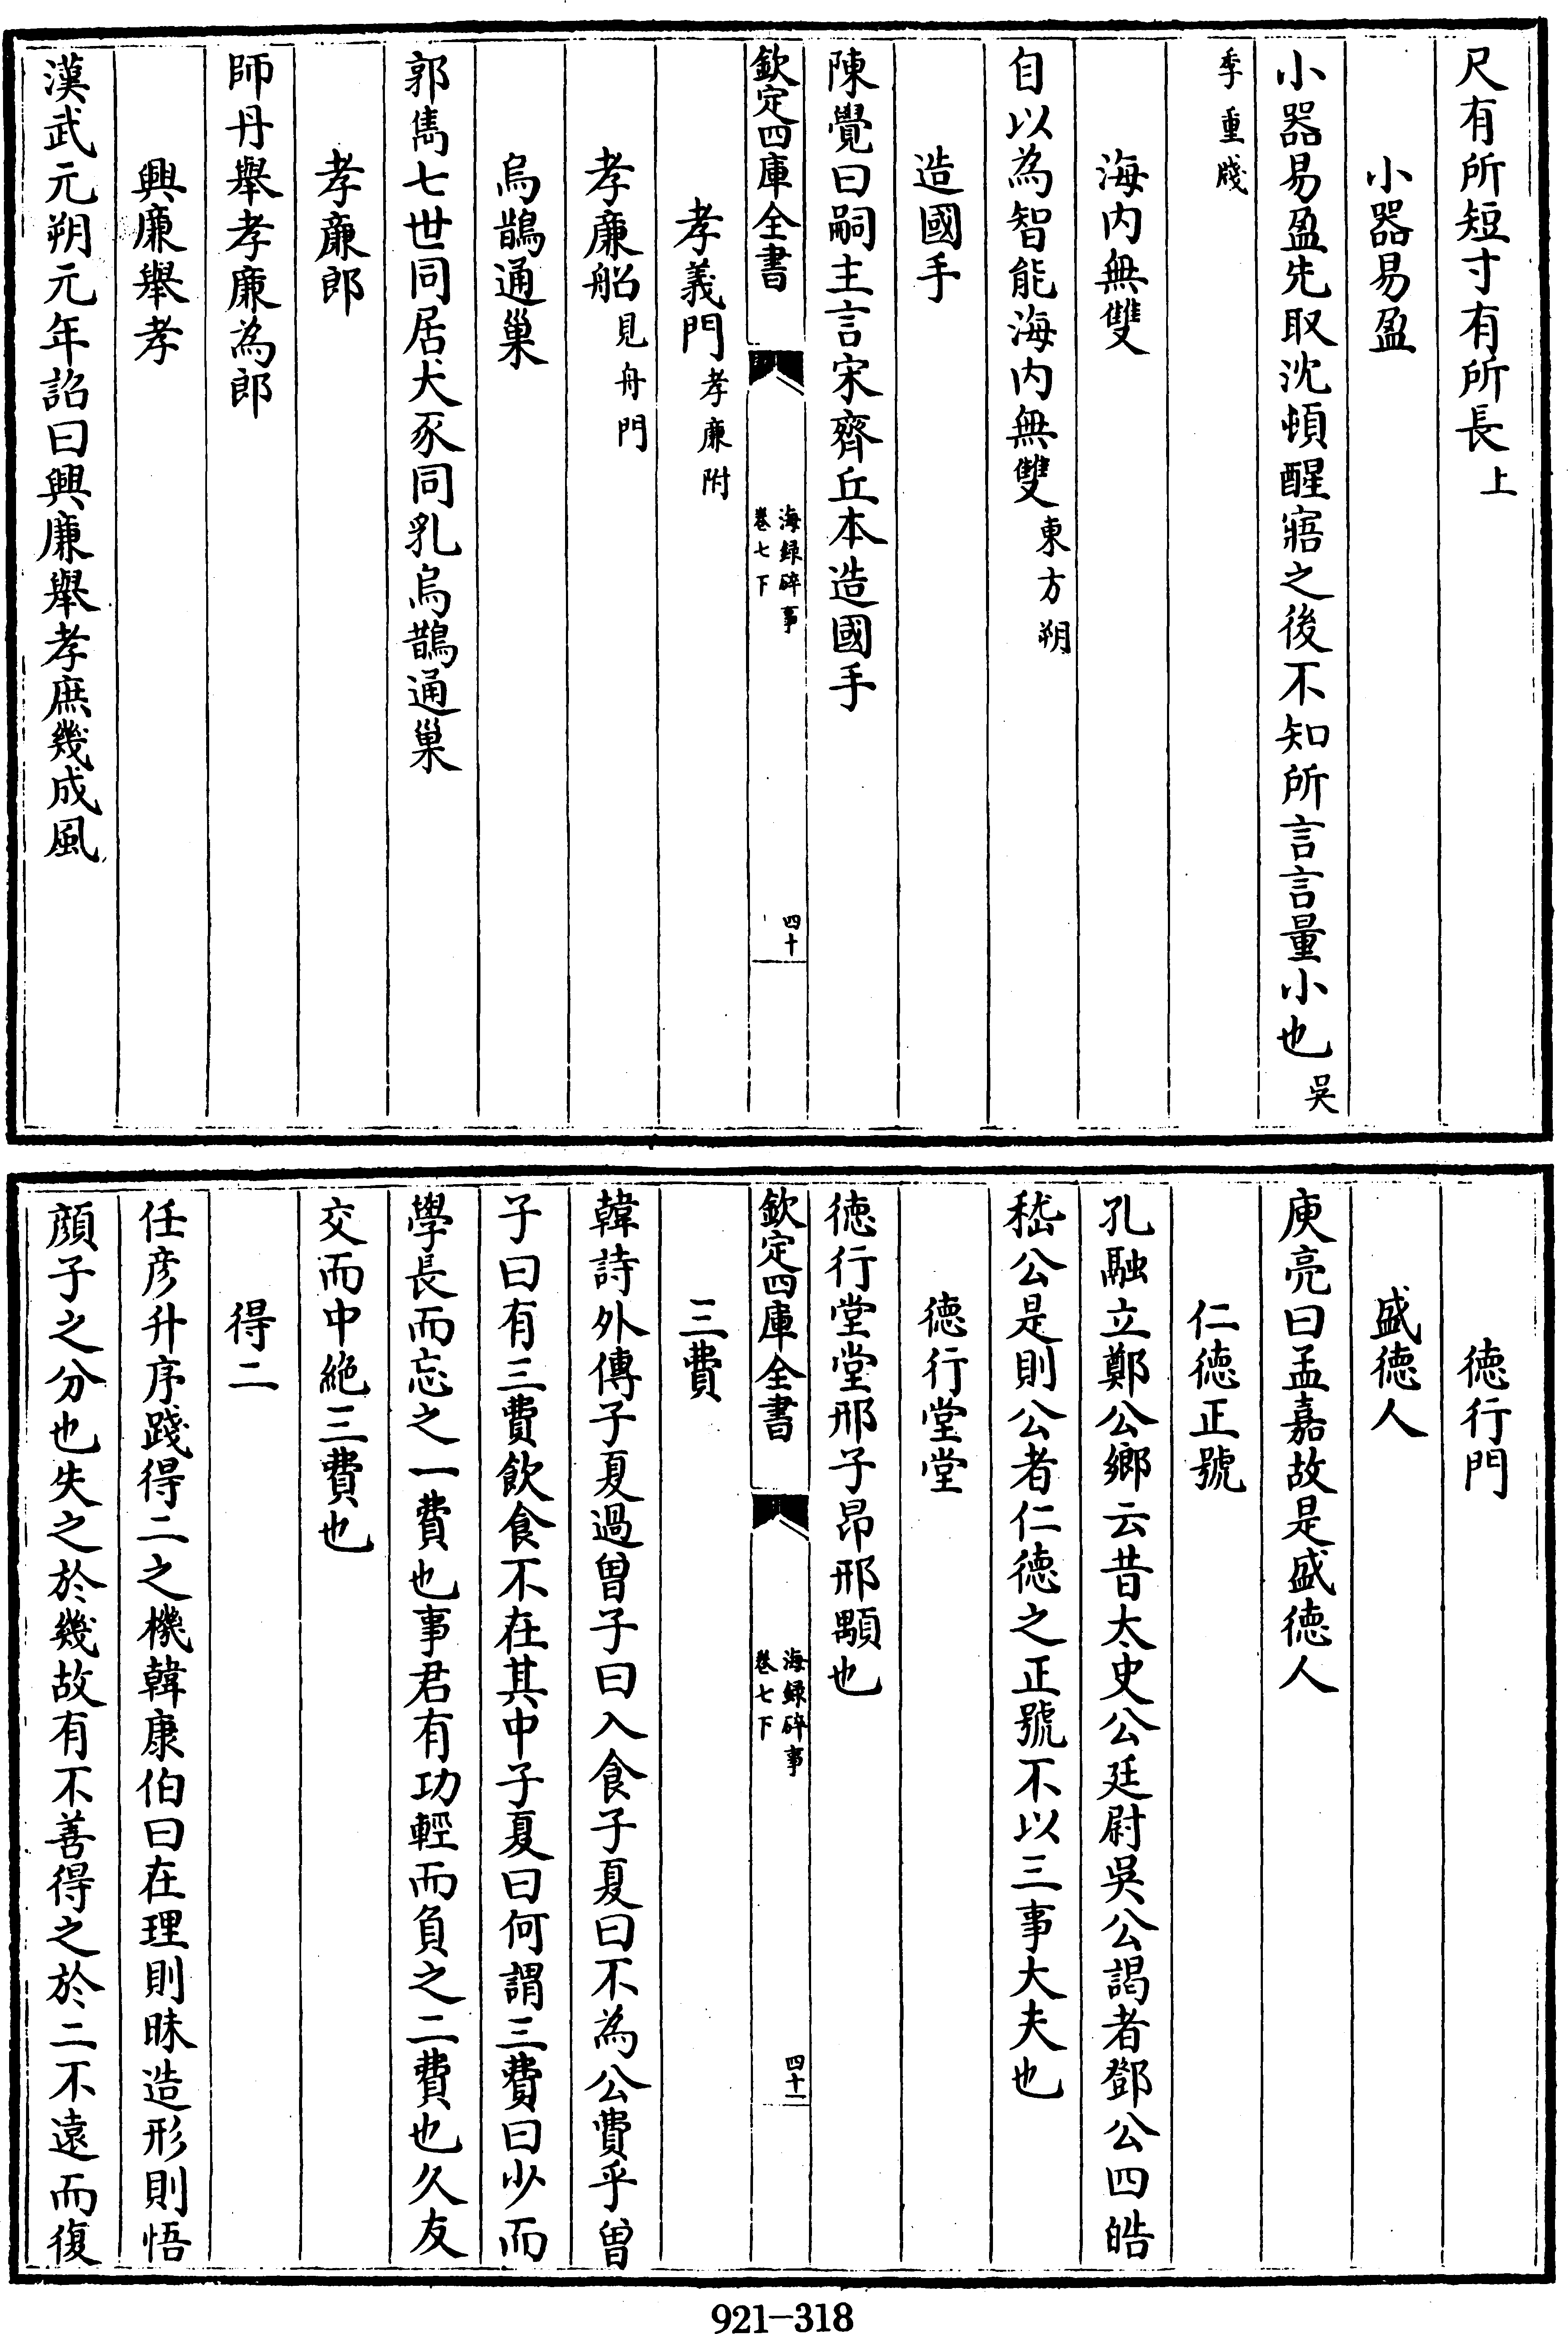 尺有所短寸有所長上
小器易盈
小器易盈先取沈頓醒寤之後不知所言言量小也吳
季重牋
海内無雙
自以為智能海内無雙東方朔
造國手
陳覺曰嗣主言宋齊丘本造國手
欽定四庫全書
海録碎事
卷七下
四十
孝義門孝廉附
孝廉船見舟門
烏鵲通巢
郭雋七世同居犬豕同乳烏鵲通巢
孝廉郎
師丹舉孝廉為郎
興廉舉孝
漢武元朔元年詔曰興廉舉孝庶幾成風
徳行門
盛徳人
庾亮曰孟嘉故是盛徳人
仁徳正號
孔融立鄭公鄉云昔太史公廷尉吳公謁者鄧公四皓
嵇公是則公者仁徳之正號不以三事大夫也
徳行堂堂
徳行堂堂邢子昂邢顒也
欽定四庫全書
海録碎事
卷七下
四十一
三費
韓詩外傳子夏過曽子曰入食子夏曰不為公費乎曽
子曰有三費飲食不在其中子夏曰何謂三費曰少而
學長而忘之一費也事君有功輕而負之二費也久友
交而中絶三費也
得二
任彦升序踐得二之機韓康伯曰在理則昧造形則悟
顔子之分也失之於幾故有不善得之於二不遠而復
921-318